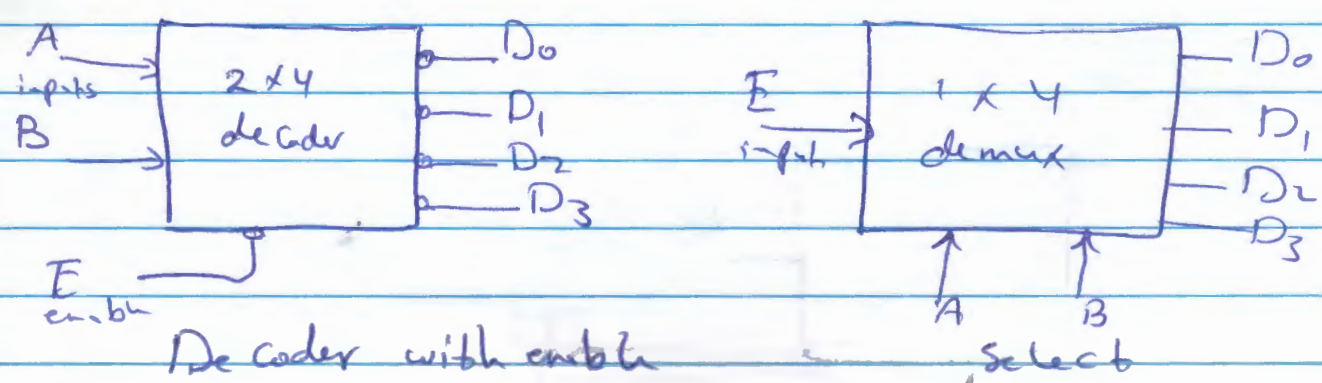 A
inputs
B
2 x 4
decoder
D0
D1
D2
D3
E
enable
Decoder with enable
E
input
1 x 4
demux
D0
D1
D2
D3
A B
Select